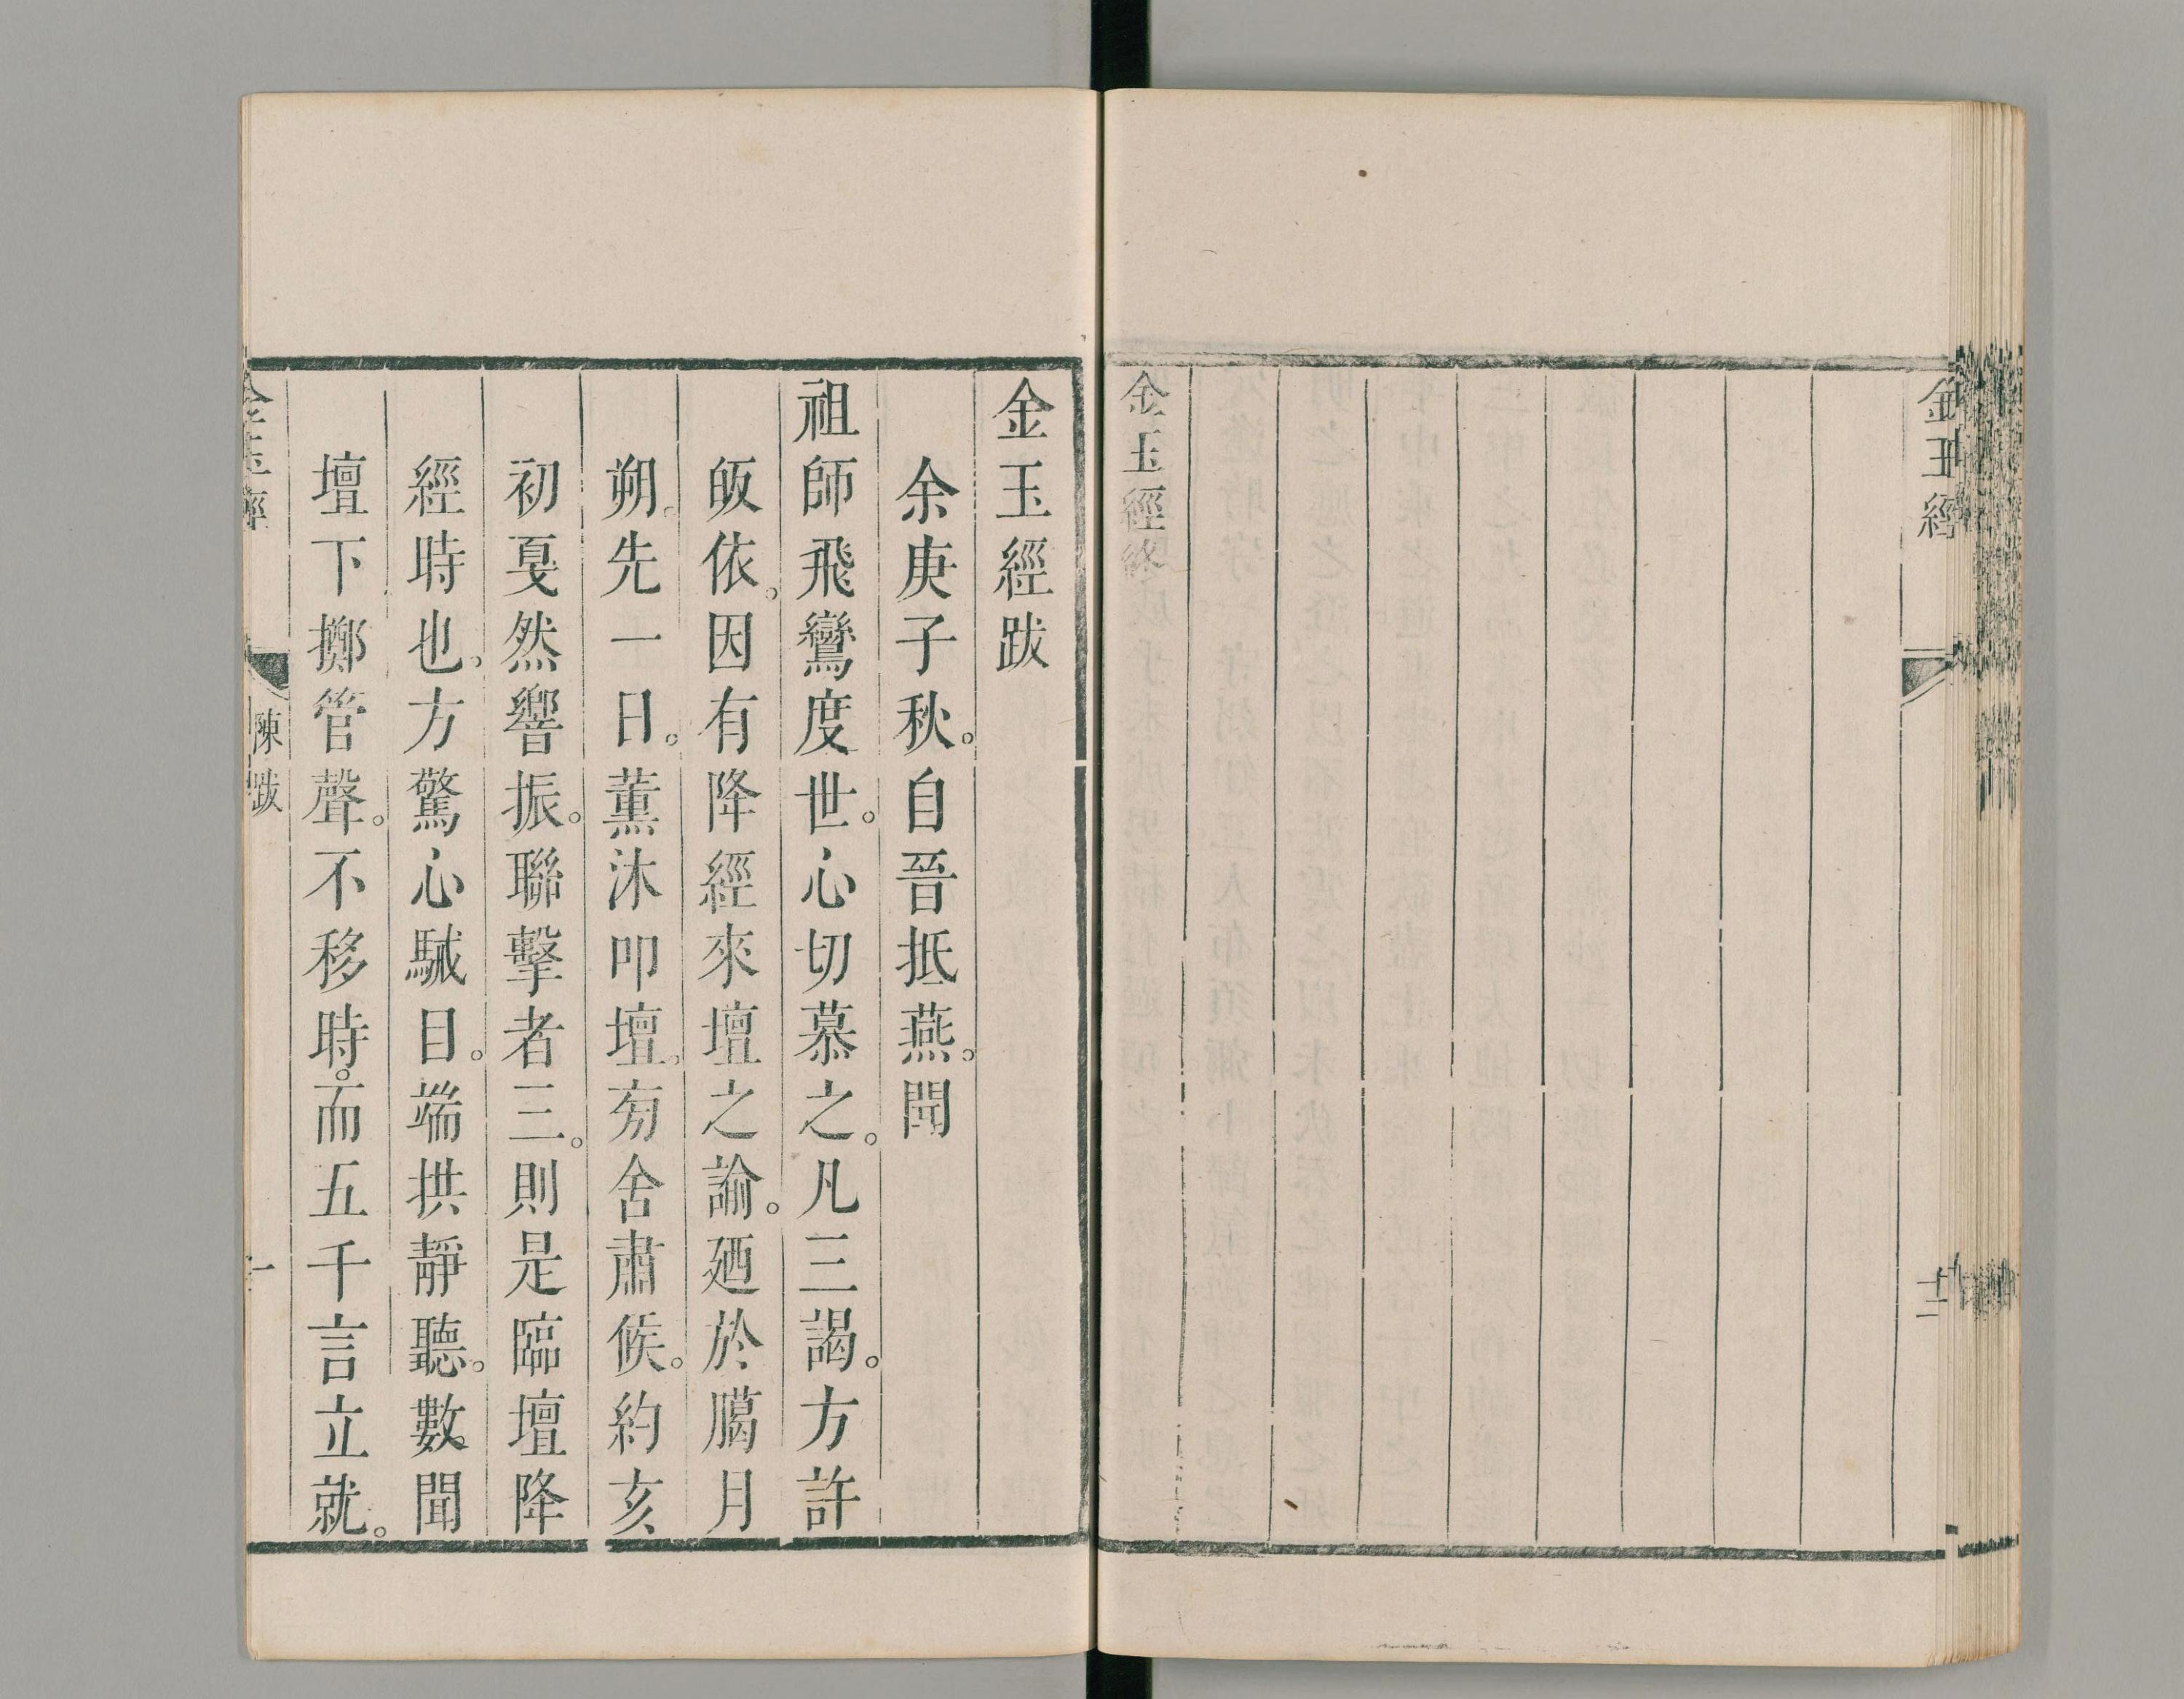 金玉經
十二
金玉經終
金玉經跋
余庚子秋。自晉抵燕。聞
祖師飛鸞度世。心切慕之。凡三謁。方許
皈依。因有降經來壇之諭。廼於臈月
朔。先一日。薰沐叩壇。㫄舍肅候。約亥
初戛然響振。聯擊者三。則是臨壇降
經時也。方驚心駴目。端拱靜聽。數聞
壇下擲管聲。不移時。而五千言立就。
金玉經
陳跋
一